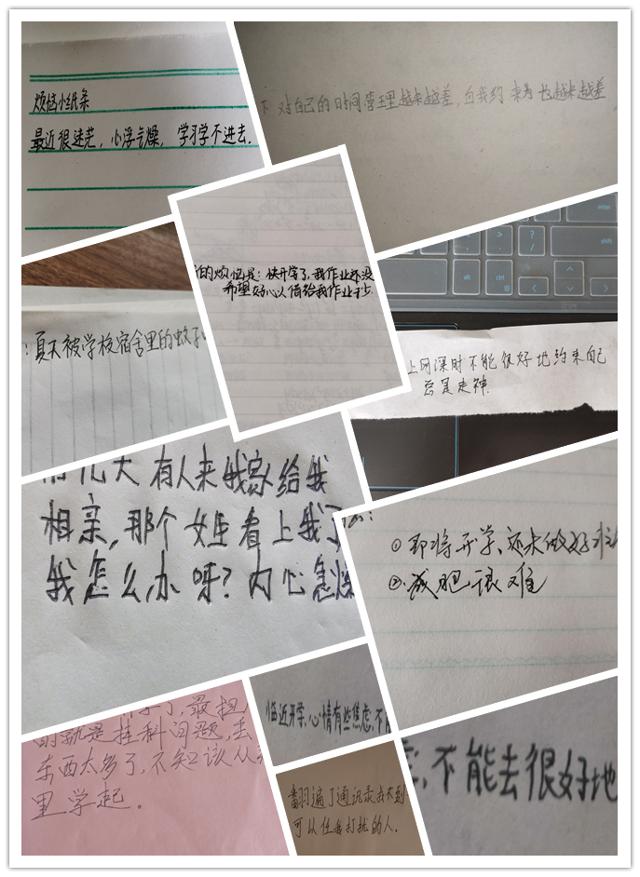 烦恼小纸条
最近很迷茫，心浮气燥，学习学不进去.
下 对自己的时间管理越来越差，自我约束力也越来越差
的烦恼是：快开学了，我作业还没
希望好心人借给我作业
夏天被学校宿舍里的蚊
上网课时不能很好地约束自己
总是走神.
几天有人来我家给我
相亲，那个女生看上我了
我怎么办呀？内心急燥
①即将开学、还未做好准
②减肥很难
最担
的就是挂科问题，
东西太多了，不知该从
里学起。
临近开学，心情有些焦虑，不
翻遍了通讯录找不到
可以任我打扰的人.
虑，不能去很好地